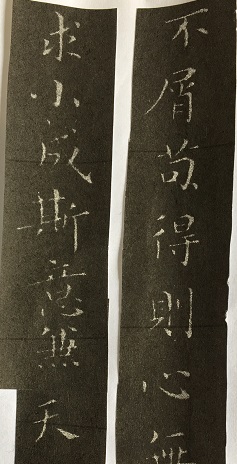 不屑苟得則心無
求小成斯意無天